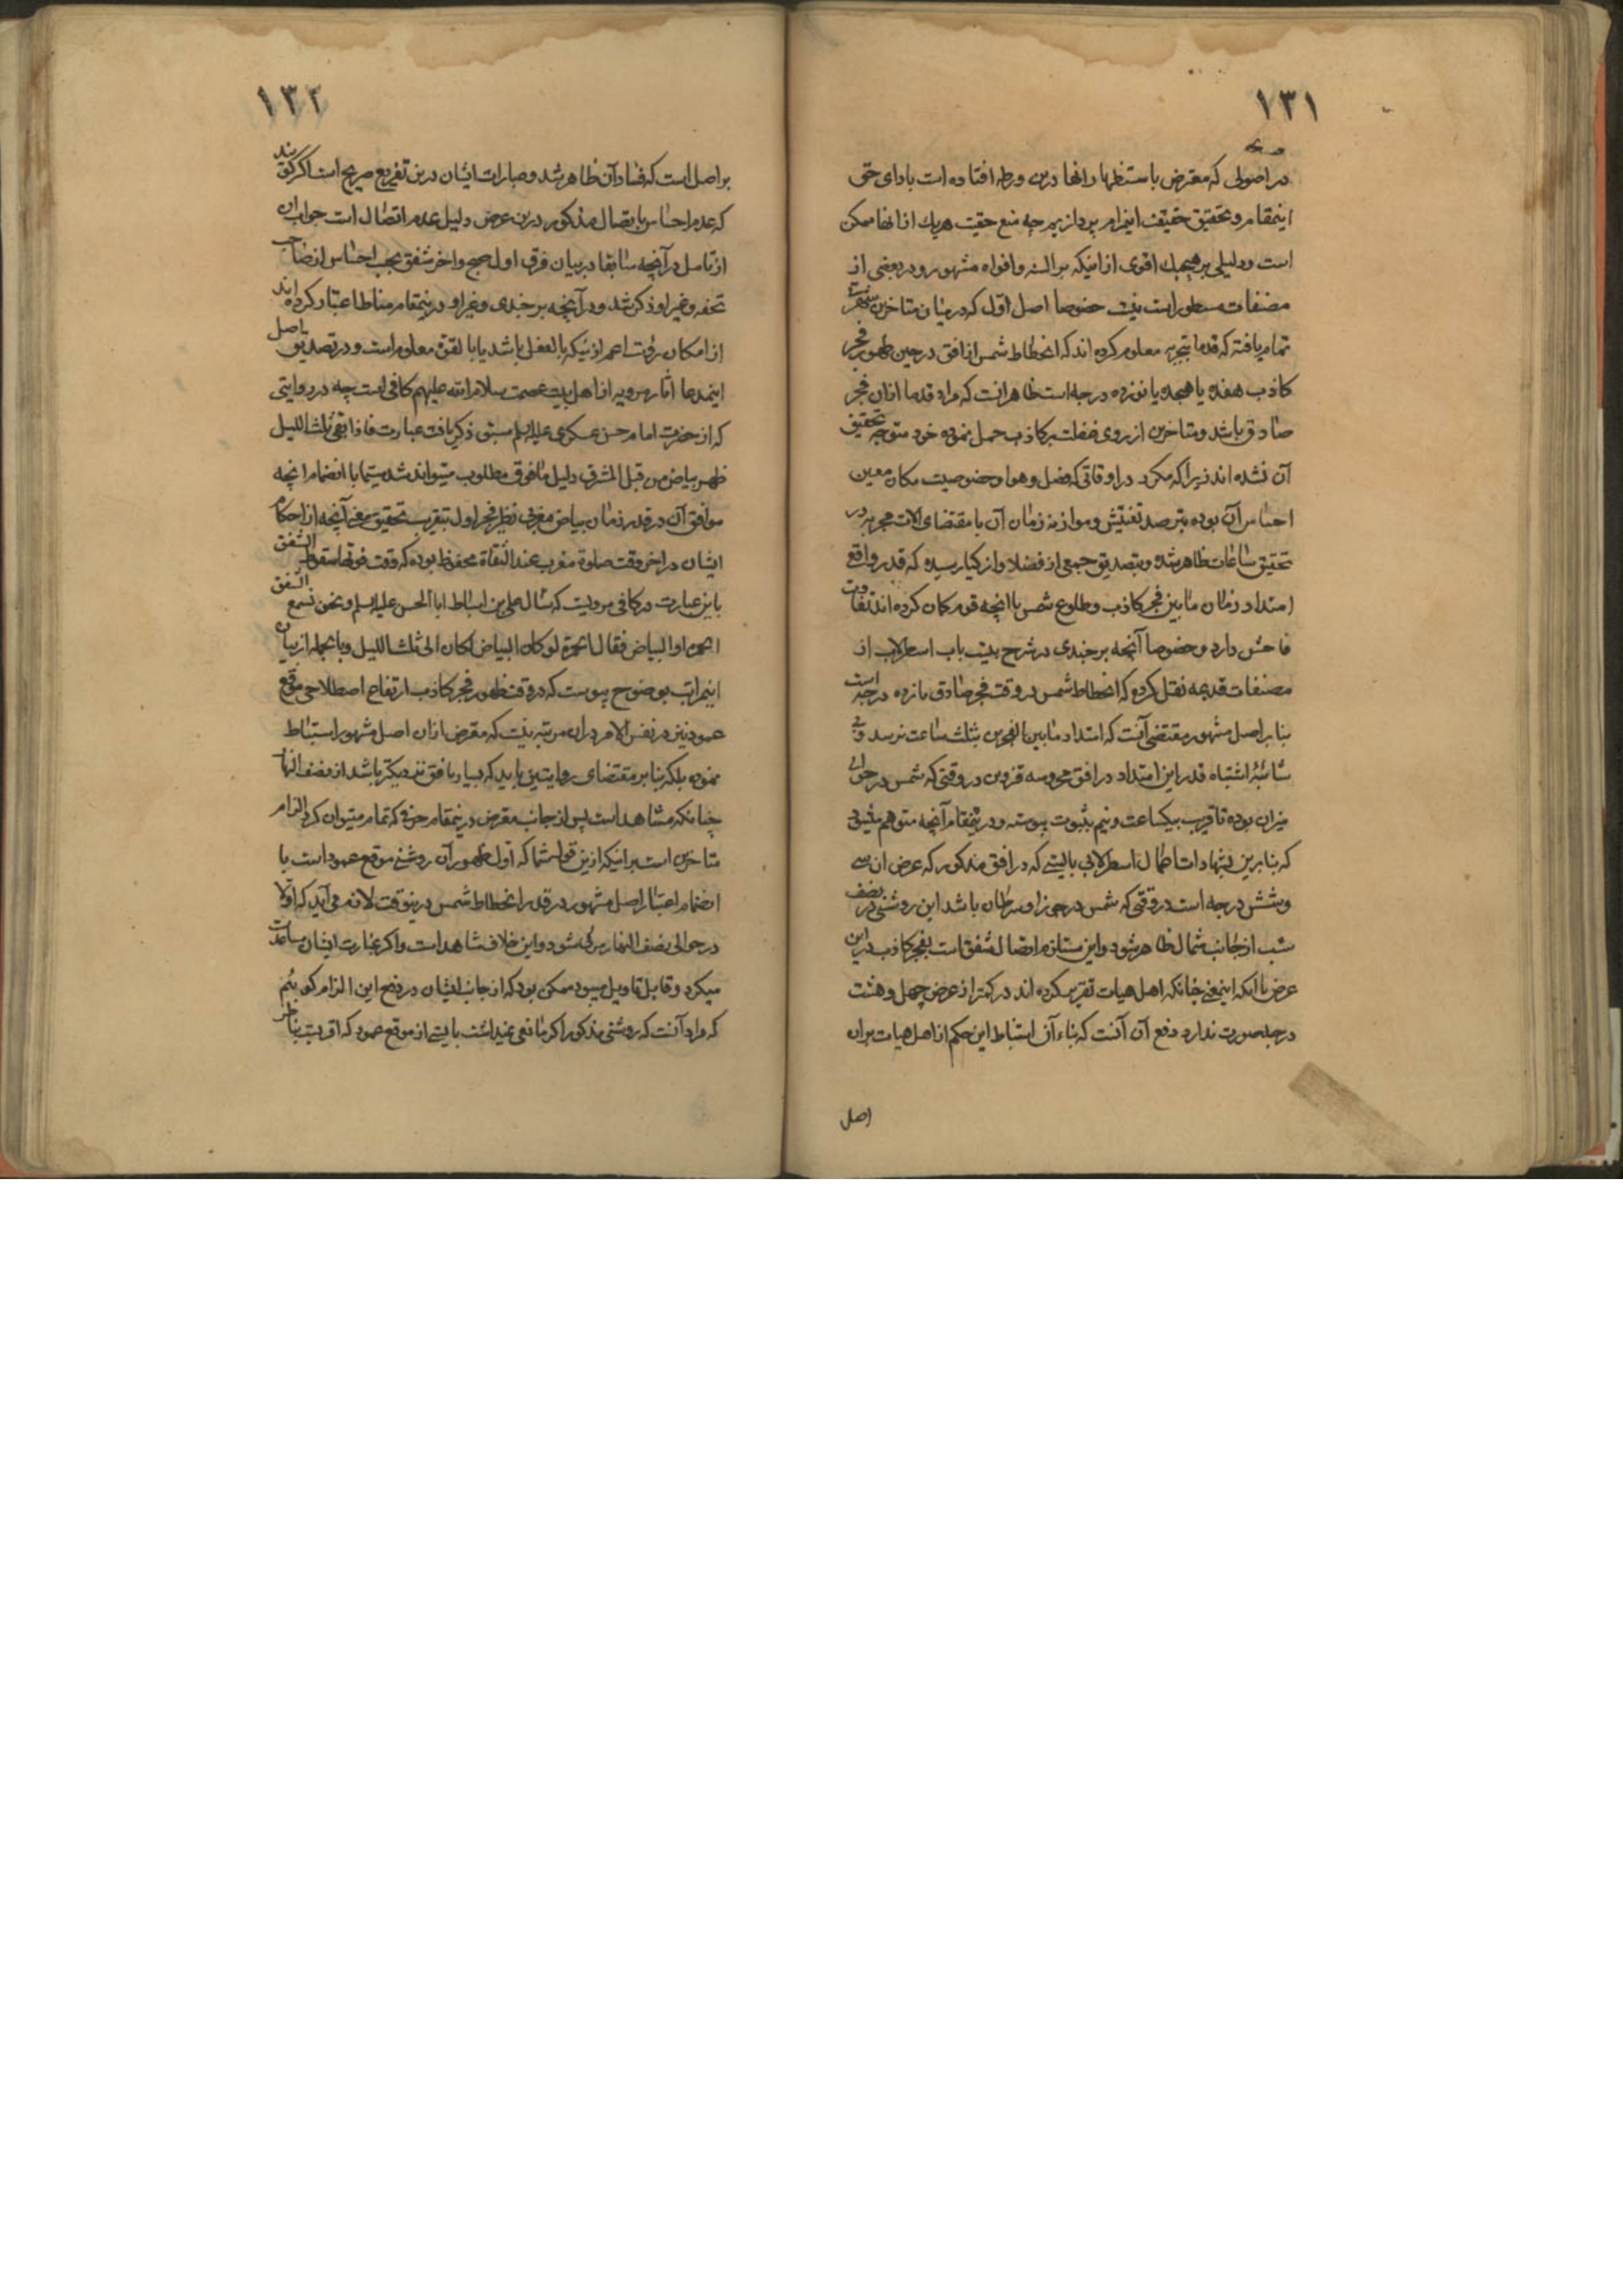 ۱۳۱
در اصولی که معترض باستظهار انها درین ورطه افتاده است بادای حق
اینمقام و تحقیق حقیقت اینمرام پردازیم چه منع حقیت هریک از انها ممکن
است و دلیلی بر هیچیک اقوی از اینکه بر السنه و افواه مشهور و در بعضی از
مصنفات مسطور است نیست خصوصا اصل اول که در میان متاخرین شهرت
تمام یافته که قدما بتجربه معلوم کرده اند که انحطاط شمس از افق در حین ظهور فجر
کاذب هفده یا هیجده یا نوزده درجه است ظاهر انست که مراد قدما ازان فجر
صادق باشد و متاخرین از روی غفلت بر کاذب حمل نموده خود متوجه تحقیق
آن نشده اند زیرا که مکرر در اوقاتی که فصل و هوا و خصوصیت مکان معین
احساس آن بوده بترصد تفتیش و موازنه زمان آن با مقتضای آلات مجربه در
تحقیق ساعات ظاهر شده و بتصدیق جمعی از فضلا و ازکیا رسیده که قدر واقع
امتداد زمان مابین فجر کاذب و طلوع شمس با انچه قوم کمان کرده اند تفاوت
فاحش دارد و خصوصا آنچه برجندی در شرح بیست باب اسطرلاب از
مصنفات قدیمه نقل کرده که انحطاط شمس در وقت فجر صادق پانزده درجه است
بنابر اصل مشهور مقتضی آنست که امتداد مابین الفجرین بثلث ساعت نرسد و بی
شائبهٔ اشتباه قدر این امتداد در افق محروسه قزوین در وقتی که شمس در حوالی
میزان بوده تا قریب بیکساعت و نیم بثبوت پیوسته و در اینمقام آنچه متوهم میشود
که بنابرین بنهادات اعمال اسطرلابی بایستی که در افق مذکور که عرض ان سی
و شش درجه است در وقتی که شمس در جوزا و سرطان باشد این روشنی در نصف
شب از جانب شمال ظاهر شود و این مستلزم اتصال شفق است بفجر کاذب در این
عرض با انکه اینمعنی چنانکه اهل هیات تقریر کرده اند در کمتر از عرض چهل و هشت
درجه صورت ندارد دفع آن آنست که بناء آن استنباط این حکم از اهل هیات بران
اصل
۱۳۲
بر اصل است که فساد آن ظاهر شد و عبارات ایشان درین تفریع صریح است اکر کویند
که عدم احساس باتصال مذکور درین عرض دلیل عدم اتصال است جواب ان
از تامل در آنچه سابقا در بیان فرق اول صبح و اخر شفق بحسب احساس از صاحب
تحفه و غیر او ذکر شد و در آنچه برجندی و غیر او در اینمقام مناط اعتبار کرده اند
از امکان رؤیت اعم از نیکه بالفعل باشد یا بالقوة معلوم است و در تصدیق باصل
اینمدعا آثار مرویه از اهل بیت عصمت سلام الله علیهم کافی است چه در روایتی
که از حضرت امام حسن عسکری علیه السلم سبق ذکر یافت عبارت فاذا بقی ثلث اللیل
ظهر بیاض من قبل المشرق دلیل مافوق مطلوب میتواند شد سیما با انضمام انچه
موافق آن در قدر زمان بیاض مغربی نظیر فجر اول بتقریب تحقیق معنی آنچه از احکام
ایشان در اخر وقت صلوة مغرب عند الثقاة محفوظ بوده که وقت فوتها سقوط الشفق
باین عبارت در کافی مرویست که سال علی بن اسباط ابا الحسن علیه السلم و نحن نسمع الشفق
الحمرة او البیاض فقال الحمرة لو کان البیاض لکان الی ثلث اللیل و بالجمله از بیان
اینمراتب بوضوح پیوست که در وقت ظهور فجر کاذب ارتفاع اصطلاحی موقع
عمود نیز در نفس الامر دران مرتبه نیست که معترض ازان اصل مشهور استنباط
نموده بلکه بنابر مقتضای روایتین باید که بسیار بافق نزدیکتر باشد از نصف النهار
چنانکه مشاهد است پس از جانب معترض در اینمقام حرفی که تمام میتوان کرد الزام
متاخرین است برانیکه ازین قول شما که اول ظهور آن روشنی موقع عمود است با
انضمام اعتبار اصل مشهور در قدر انحطاط شمس درینوقت لازم می آید که اولا
در حوالی نصف النهار مرئی شود و این خلاف مشاهد است و اکر عبارت ایشان مساعدت
میکرد و قابل تاویل میبود ممکن بود که از جانب ایشان در دفع این الزام کوییم
که مراد آنست که روشنی مذکور اکر مانعی نمیداشت بایستی از موقع عمود که اقربست بناظر